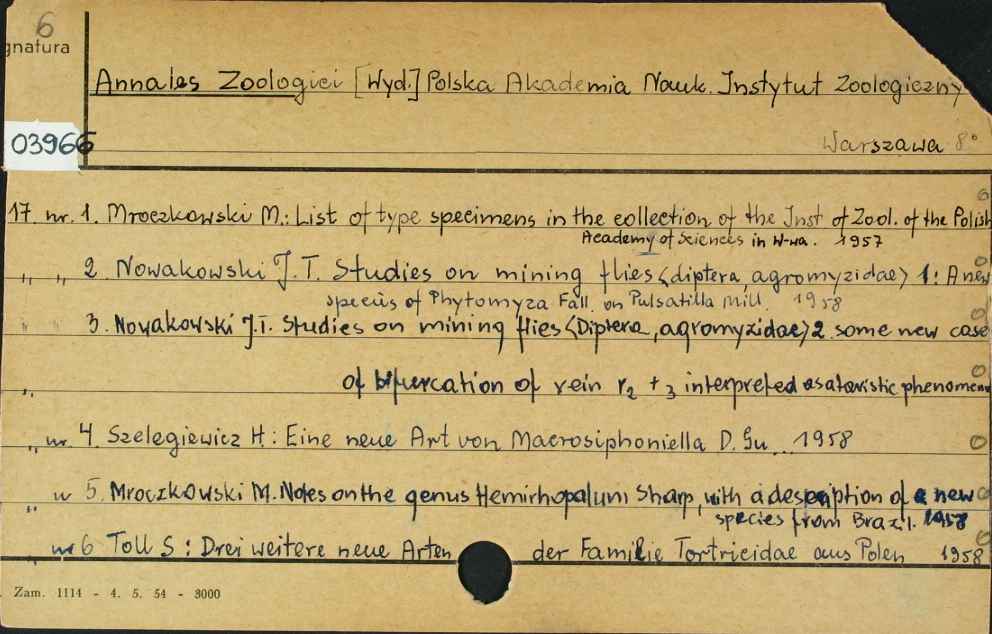 6
gnatura
Annales Zoologici [Wyd.] Polska Akademia Nauk. Instytut Zoologiczny
03966
Warszawa 8°
17 nr. 1. Mroczkowski M.: List of type specimens in the collection of the Inst of Zool. of the Polish
Academy of Sciences in W-wa. 1957
" " 2 Nowakowski J.T. Studies on mining flies <diptera, agromyzidae> 1: A new
species of Phytomyza Fall. on Pulsatilla Mill. 1958
" " 3. Nowakowski J.T. Studies on mining flies <Diptera, agromyzidae> 2 some new case
" of bifurcation of vein r2 + 3 interpreted as atavistic phenomen
" nr 4. Szelegiewicz H.: Eine neue Art von Macrosiphoniella D. Gu... 1958
" nr 5. Mroczkowski M. Notes on the genus Hemirhopalum Sharp, with a description of a new
species from Brazil. 1958
nr 6 Toll S: Drei weitere neue Arten der Familie Tortricidae aus Polen 1958
Zam. 1114 - 4. 5. 54 - 3000